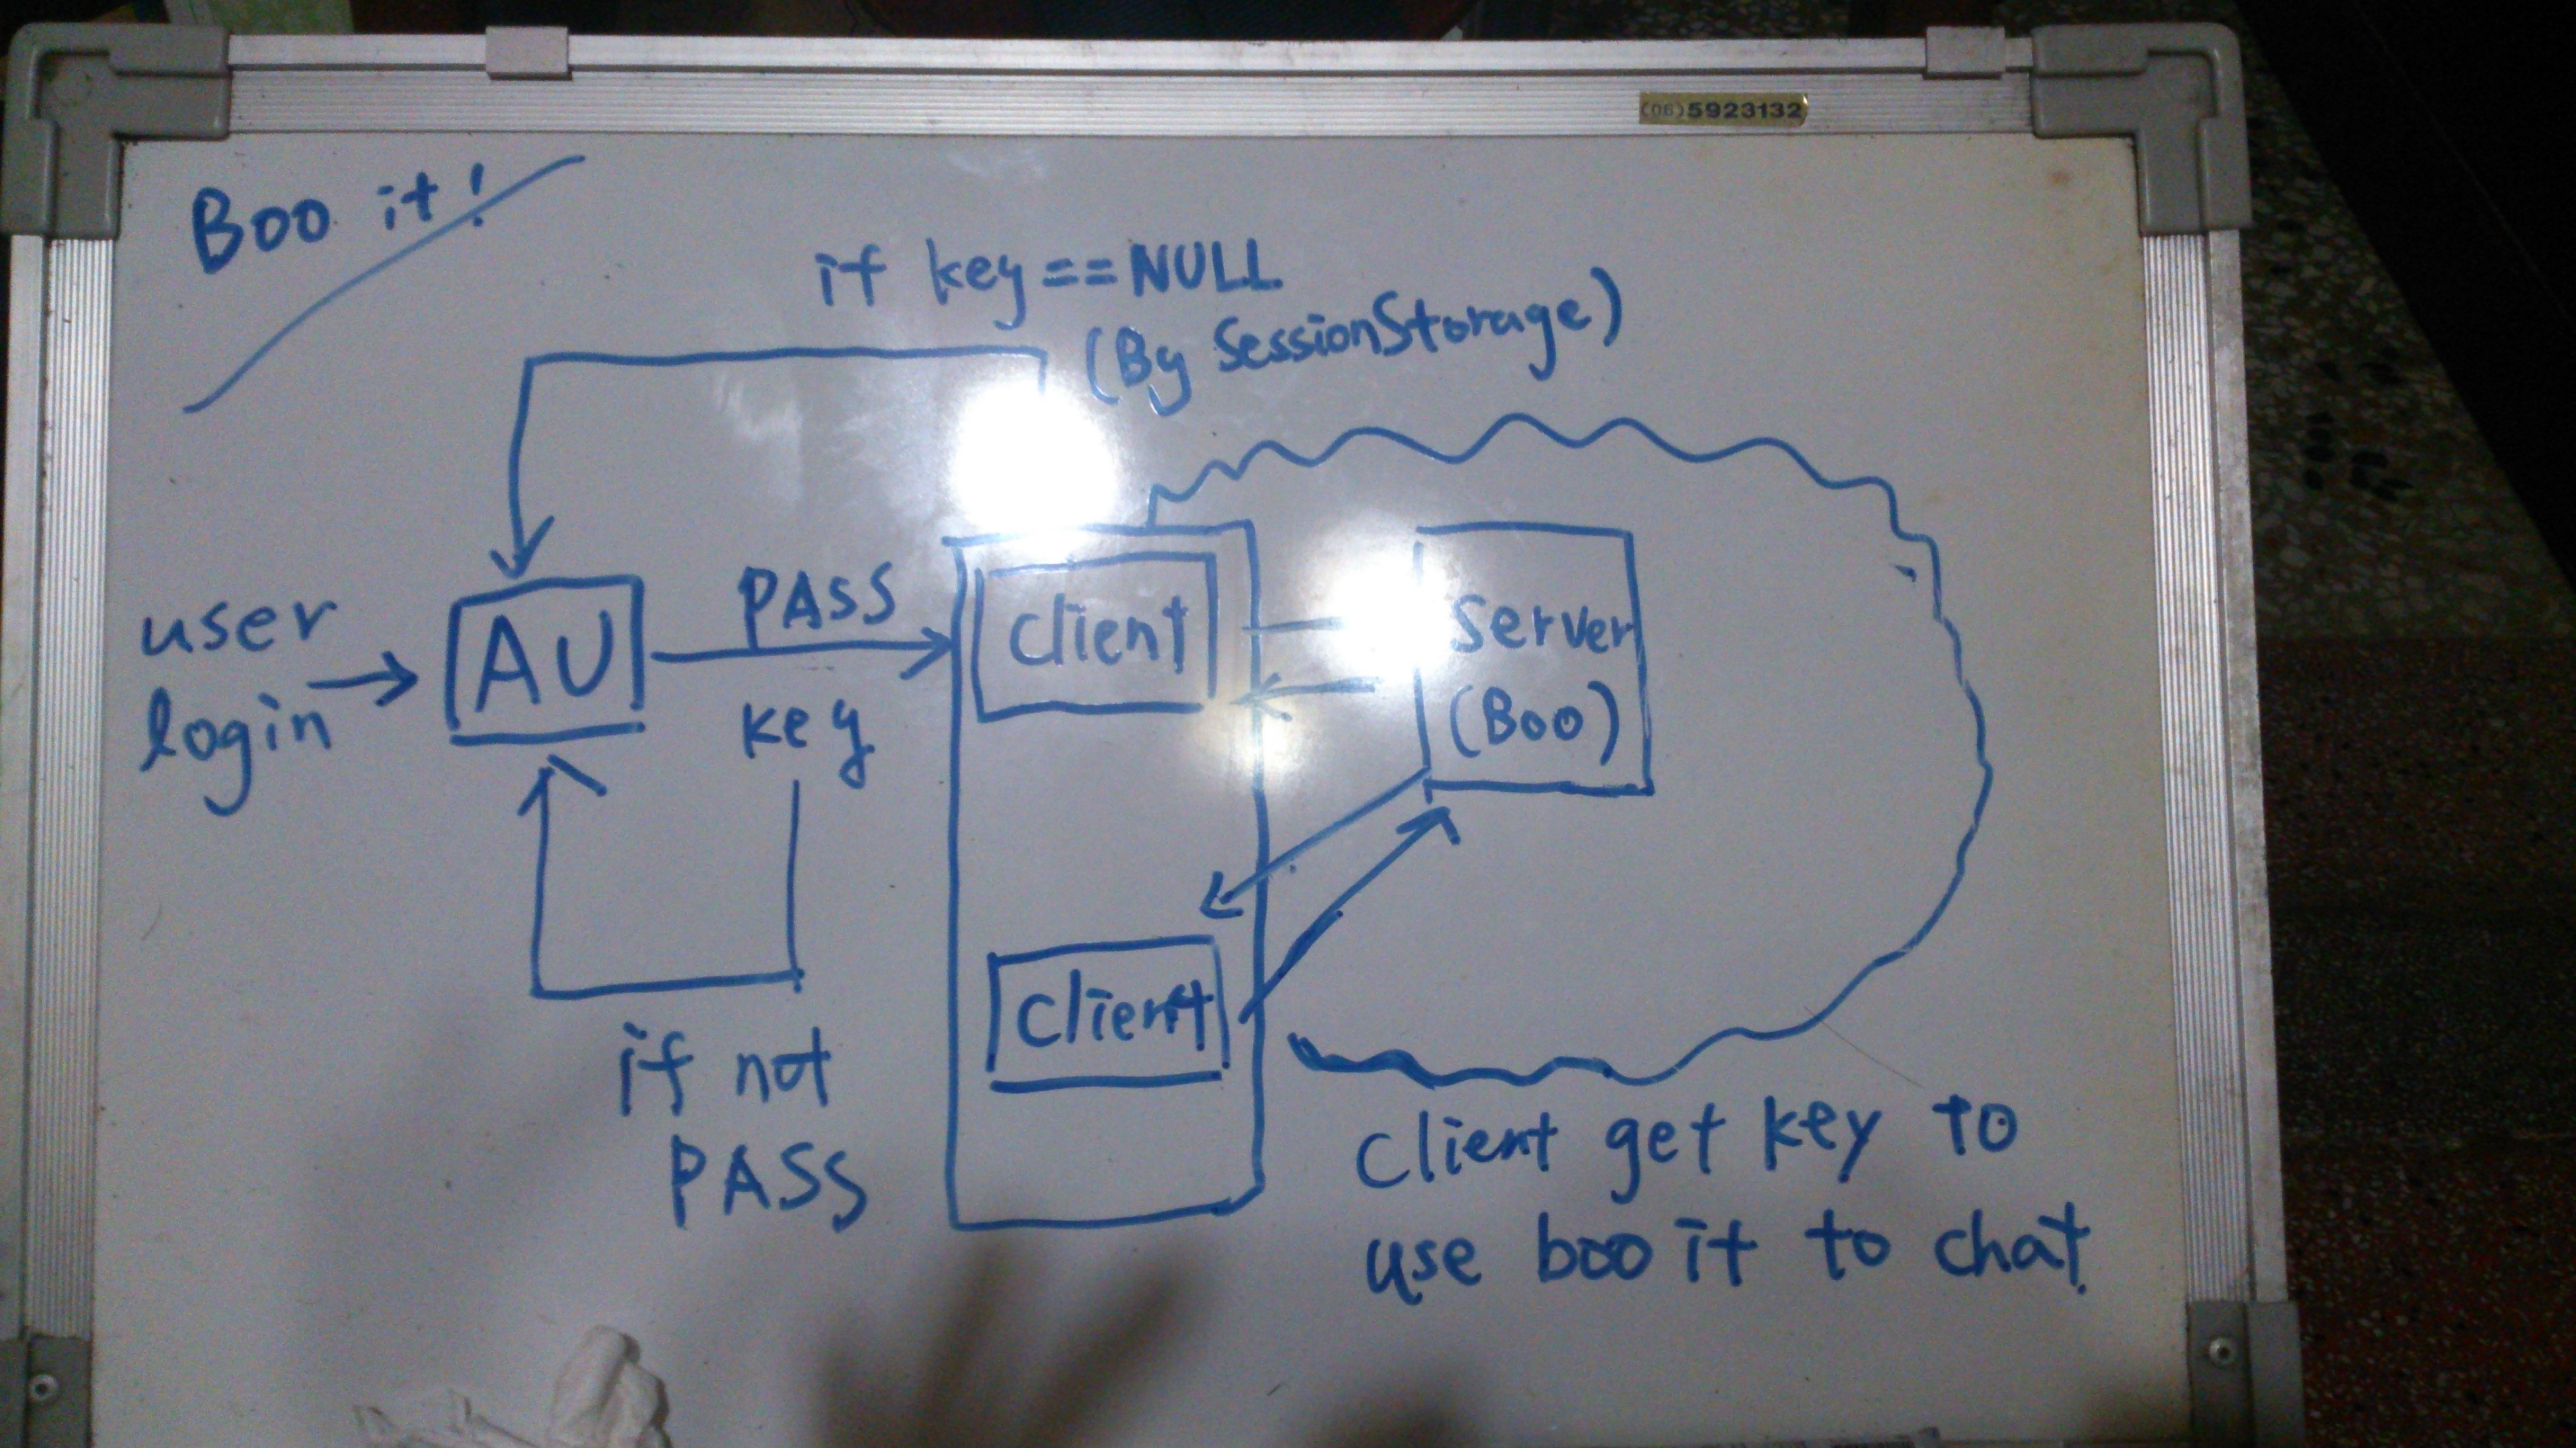 (06)5923132
Boo it!
if key==NULL
(By SessionStorage)
user
login
AU
PASS
key
if not
PASS
client
client
Server
(Boo)
Client get key to
use boo it to chat